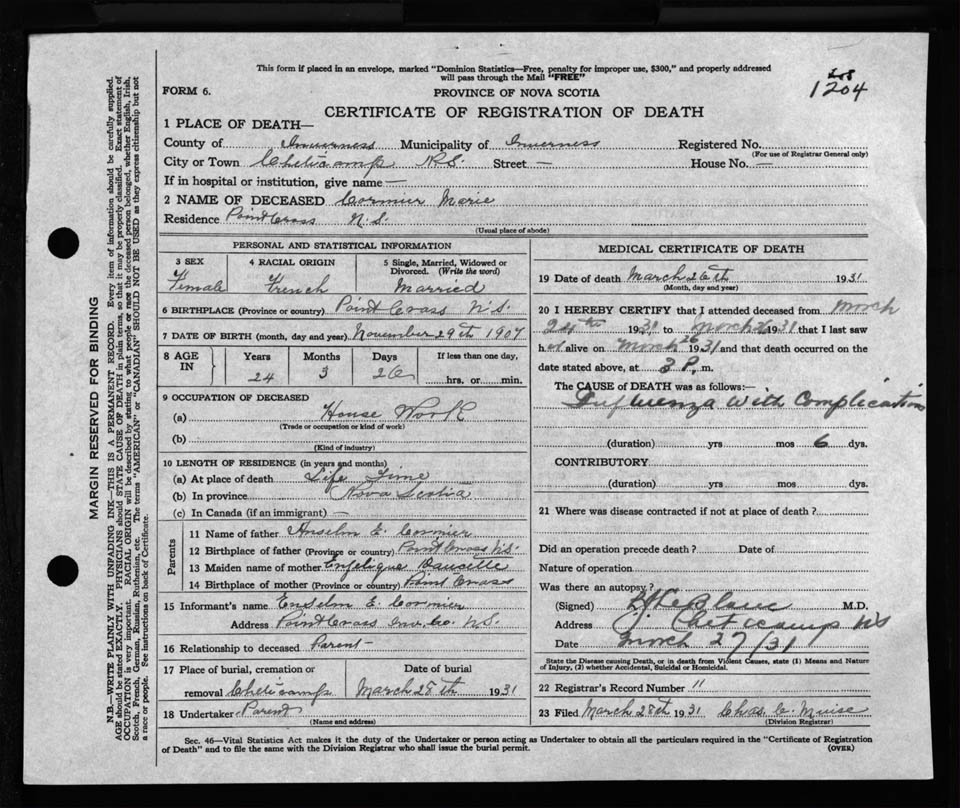 This form if placed in an envelope, marked "Dominion Statistics—Free, penalty for improper use, $300," and properly addressed
will pass through the Mail "FREE"
1204
FORM 6.
PROVINCE OF NOVA SCOTIA
CERTIFICATE OF REGISTRATION OF DEATH
1 PLACE OF DEATH—
County of Inverness Municipality of Inverness Registered No.
(For use of Registrar General only)
City or Town Cheticamp N.S. Street — House No. —
If in hospital or institution, give name —
2 NAME OF DECEASED Cormier Marie
Residence Point Cross N.S.
(Usual place of abode)
PERSONAL AND STATISTICAL INFORMATION
3 SEX
Female
4 RACIAL ORIGIN
French
5 Single, Married, Widowed or
Divorced. (Write the word)
Married
6 BIRTHPLACE (Province or country) Point Cross N.S.
7 DATE OF BIRTH (month, day and year) November 29th 1907
8 AGE IN
Years Months Days If less than one day,
24 3 26 hrs. or min.
9 OCCUPATION OF DECEASED
(a) House Work
(Trade or occupation or kind of work)
(b)
(Kind of industry)
10 LENGTH OF RESIDENCE (in years and months)
(a) At place of death Life Time
(b) In province Nova Scotia
(c) In Canada (if an immigrant) —
Parents
11 Name of father Anselm E. Cormier
12 Birthplace of father (Province or country) Point Cross N.S.
13 Maiden name of mother Engelique
14 Birthplace of mother (Province or country) Point Cross
15 Informant's name Enselm E. Cormier
Address Point Cross Inv. Co. N.S.
16 Relationship to deceased Parent
17 Place of burial, cremation or Date of burial
removal Cheticamp March 28th 1931
18 Undertaker Parent
(Name and address)
MEDICAL CERTIFICATE OF DEATH
19 Date of death March 26th 1931
(Month, day and year)
20 I HEREBY CERTIFY that I attended deceased from March
24th 1931 to March 26 1931 that I last saw
her alive on March 26 1931 and that death occurred on the
date stated above, at 3 P. m.
The CAUSE of DEATH was as follows:—
Influenza with Complications
(duration) yrs mos 6 dys.
CONTRIBUTORY
(duration) yrs. mos. dys.
21 Where was disease contracted if not at place of death?
Did an operation precede death? Date of
Nature of operation
Was there an autopsy?
(Signed) LeBlanc M.D.
Address Cheticamp NS
Date March 27/31
State the Disease causing Death, or in death from Violent Causes, state (1) Means and Nature
of Injury, (2) whether Accidental, Suicidal or Homicidal.
22 Registrar's Record Number 11
23 Filed March 28th 1931 Chas. C. Muise
(Division Registrar)
Sec. 46—Vital Statistics Act makes it the duty of the Undertaker or person acting as Undertaker to obtain all the particulars required in the "Certificate of Registration
of Death" and to file the same with the Division Registrar who shall issue the burial permit. (OVER)
MARGIN RESERVED FOR BINDING
N.B.—WRITE PLAINLY WITH UNFADING INK—THIS IS A PERMANENT RECORD. Every item of information should be carefully supplied.
AGE should be stated EXACTLY. PHYSICIANS should STATE CAUSE OF DEATH in plain terms, so that it may be properly classified. Exact statement of
OCCUPATION is very important. RACIAL ORIGIN will be described by stating to what people or race the deceased person belonged, whether English, Irish,
Scotch, French, German, Russian, Ruthenian, etc. The terms "AMERICAN" or "CANADIAN" SHOULD NOT BE USED as they express citizenship but not
a race or people. See instructions on back of Certificate.